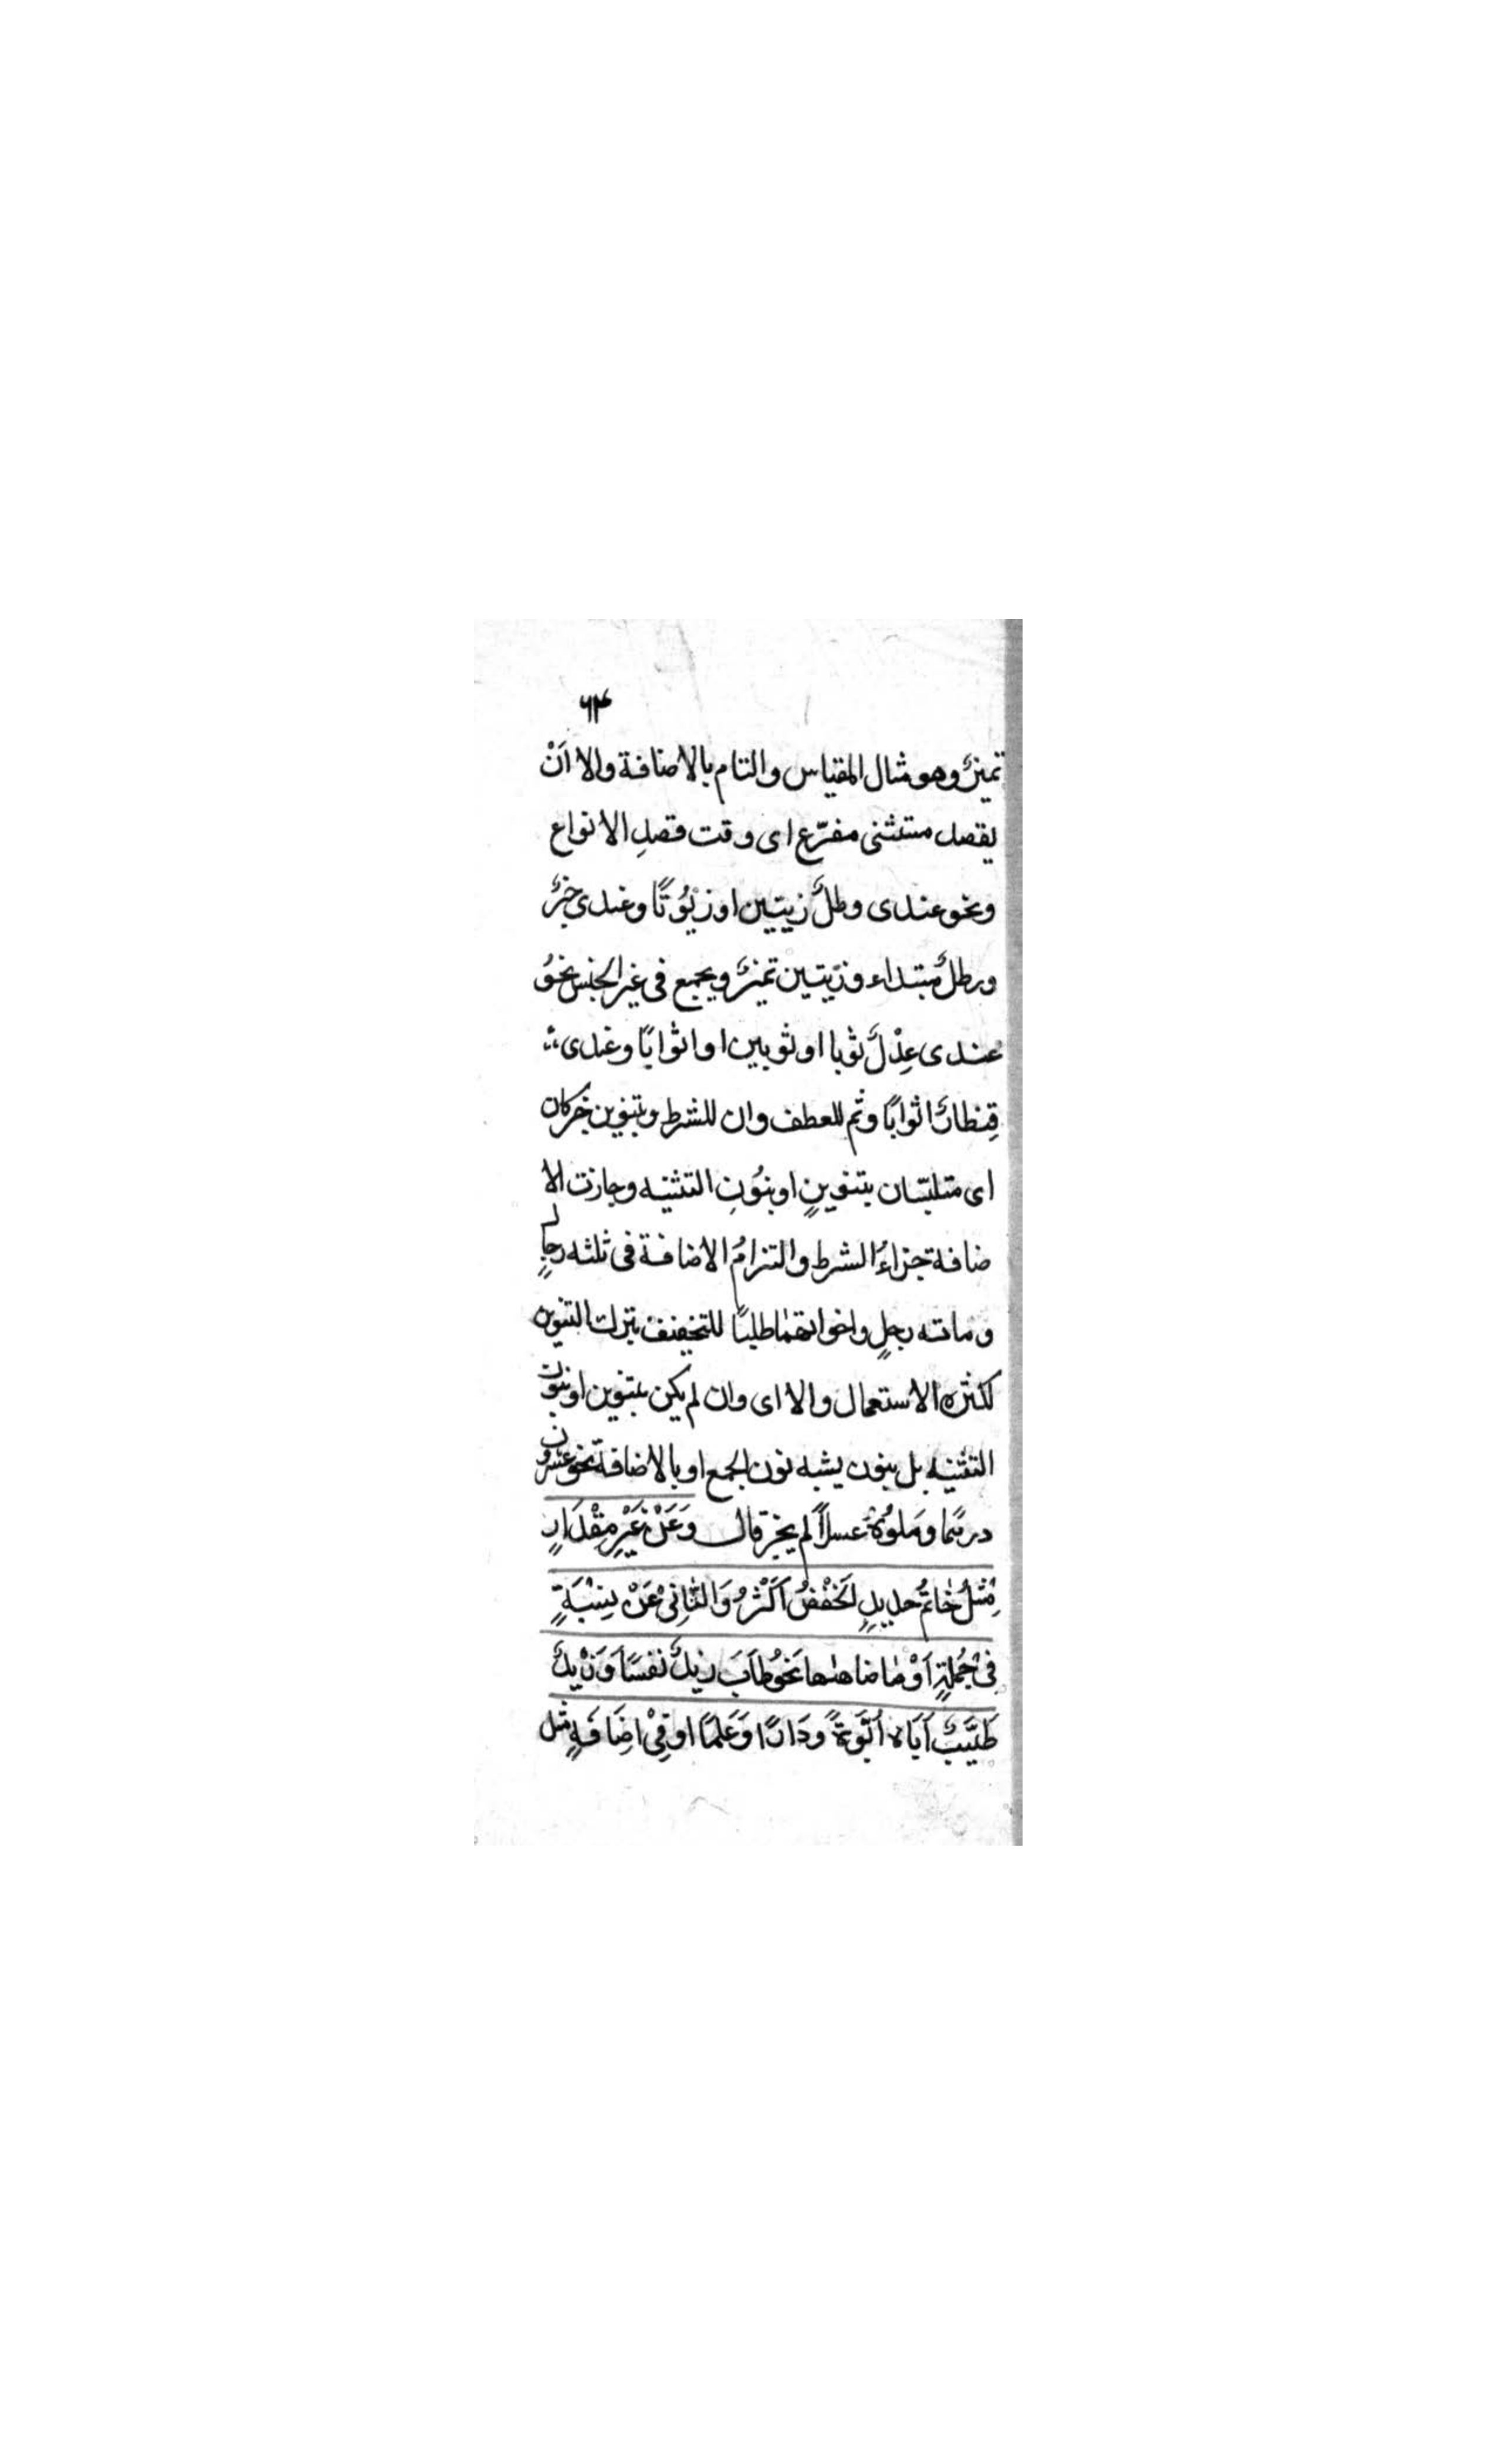 ٦٣
تميزٌ وهو مثال المقياس والتام بالاضافة والا اَنْ
يقصل مستثنى مفرّع اى وقت قصلِ الانواع
ونحو عندى وطلٌ زيتين او زيُوتًا وعندى خبرٌ
ورطلٌ مبتداء وزيتين تميزٌ ويجمع فى غير الجنس نحوُ
عندى عِدْلٌ ثوبا او ثوبين او اثوابًا وعندى
قِنطارٌ اثوابًا وثم للعطف وان للشرط وبتنوين خبر كان
اى متلبّسان بتنوينٍ او بنُونِ التثنيه وجازت الا
ضافة جزاءُ الشرط والتزامُ الاضافة فى ثلثه رجالٍ
ومائه رجلٍ واخواتهما طلبًا للتخفيف بترك التنوين
لكثره الاستعمال والا اى وان لم يكن بتنوين او بنون
التثنيه بل بنون يشبه نون الجمع او بالاضافة نحو عشرون
درهمًا وملؤُهُ عسلاً لم يجز قال وَعَنْ غَيْرِ مِقْدَارٍ
مِثْلُ خَاتمُ حديدٍ اَلخَفْضُ اَكْثَرُ وَالثَّانِىْ عَنْ نِسْبَةٍ
فِىْ جُمْلَةٍ اَوْ مَا ضاهاها نَحْوُ طَابَ زيدٌ نفسًا وَ زَيدٌ
طَيِّبٌ اَبًا و اُبُوَّةً ودَارًا وَعَلمًا او فِىْ اِضَافَةٍ مثل